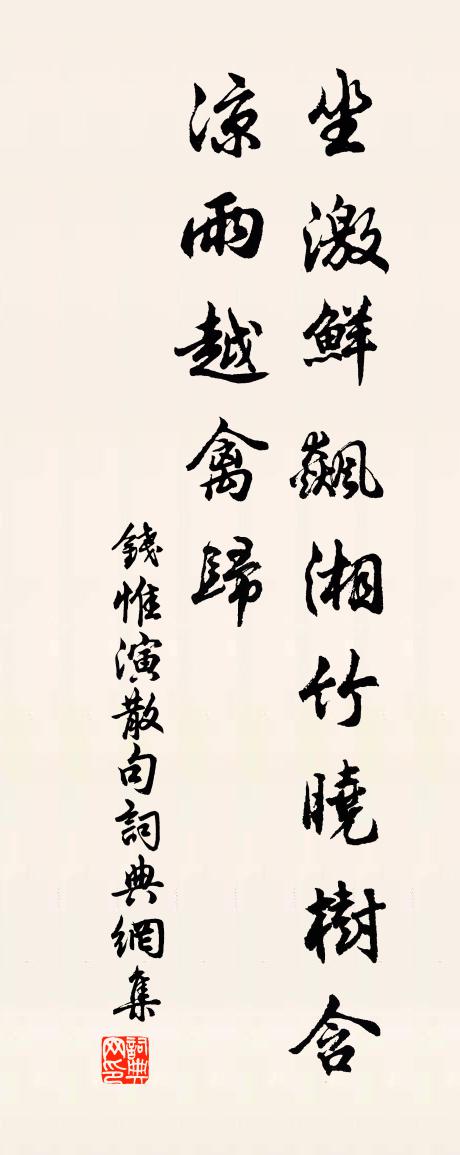 坐激鮮飆湘竹曉樹含
涼雨越禽歸
錢惟演散句詞典網集
詞典网印